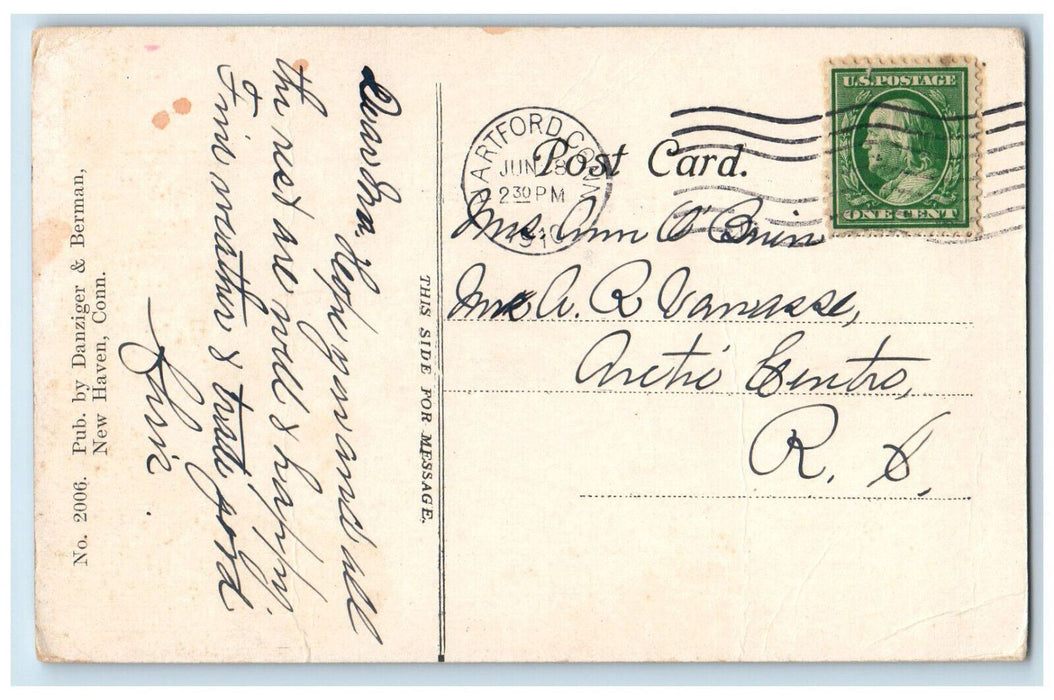 Post Card.
U.S. POSTAGE
ONE CENT
HARTFORD CONN
JUN 8
2 30 PM
1910
Mrs. Ann O'Brien
A. R. Vanasse,
Arctic Centre,
R. I.
THIS SIDE FOR MESSAGE.
Dear Ma, Hope you and all
the rest are well & happy.
Fine weather & trade good
No. 2006. Pub. by Danziger & Berman,
New Haven, Conn.